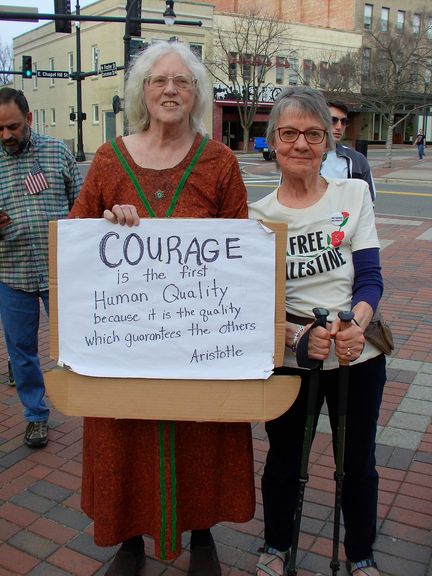 E. Chapel Hill St
N. Foster St
Corcoran St
COURAGE
is the first
Human Quality
because it is the quality
which guarantees the others
Aristotle
FREE
ALESTINE